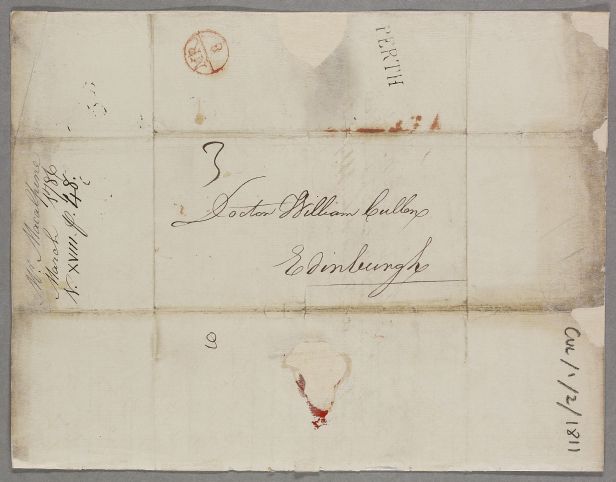 MR
8
PERTH
3
Doctor William Cullen
Edinburgh
Mr. Macalpine
March 1786
N. XVIII. p. 48.
6
Cul/1/2/1811